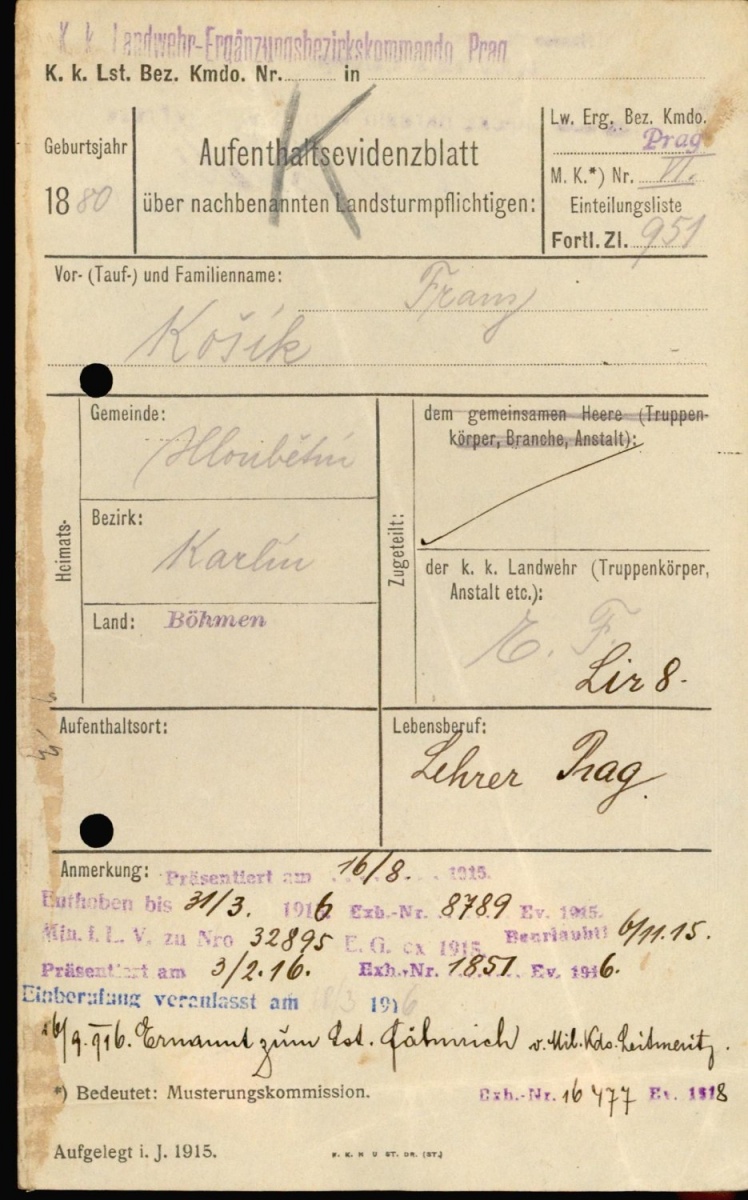 K. k. Landwehr-Ergänzungsbezirkskommando Prag
K. k. Lst. Bez. Kmdo. Nr. in
Geburtsjahr
1880
K
Aufenthaltsevidenzblatt
über nachbenannten Landsturmpflichtigen:
Lw. Erg. Bez. Kmdo.
Prag
M. K.*) Nr. VI.
Einteilungsliste
Fortl. Zl. 951
Vor- (Tauf-) und Familienname:
Franz
Košik
Heimats-
Gemeinde:
Hloubětín
Bezirk:
Karlín
Land: Böhmen
Zugeteilt:
dem gemeinsamen Heere (Truppen-
körper, Branche, Anstalt):
der k. k. Landwehr (Truppenkörper,
Anstalt etc.):
E. F.
Lir 8.
Aufenthaltsort:
Lebensberuf:
Lehrer Prag.
Anmerkung: Präsentiert am 16/8. 1915.
Enthoben bis 31/3. 1916 Exb.-Nr. 8789 Ev. 1915.
Min. f. L. V. zu Nro 32895 E. G. ex 1915 Beurlaubt! 6/11.15.
Präsentiert am 3/2.16. Exh.-Nr. 1851 Ev. 1916.
Einberufung veranlasst am 18/3 1916
26/9. 916. Ernannt zum Lst. Fähnrich v. Mil. Kds. Leitmeritz.
*) Bedeutet: Musterungskommission.
Exh.-Nr. 16477 Ev. 1918
Aufgelegt i. J. 1915.
F. K. H U ST. DR. (ST.)